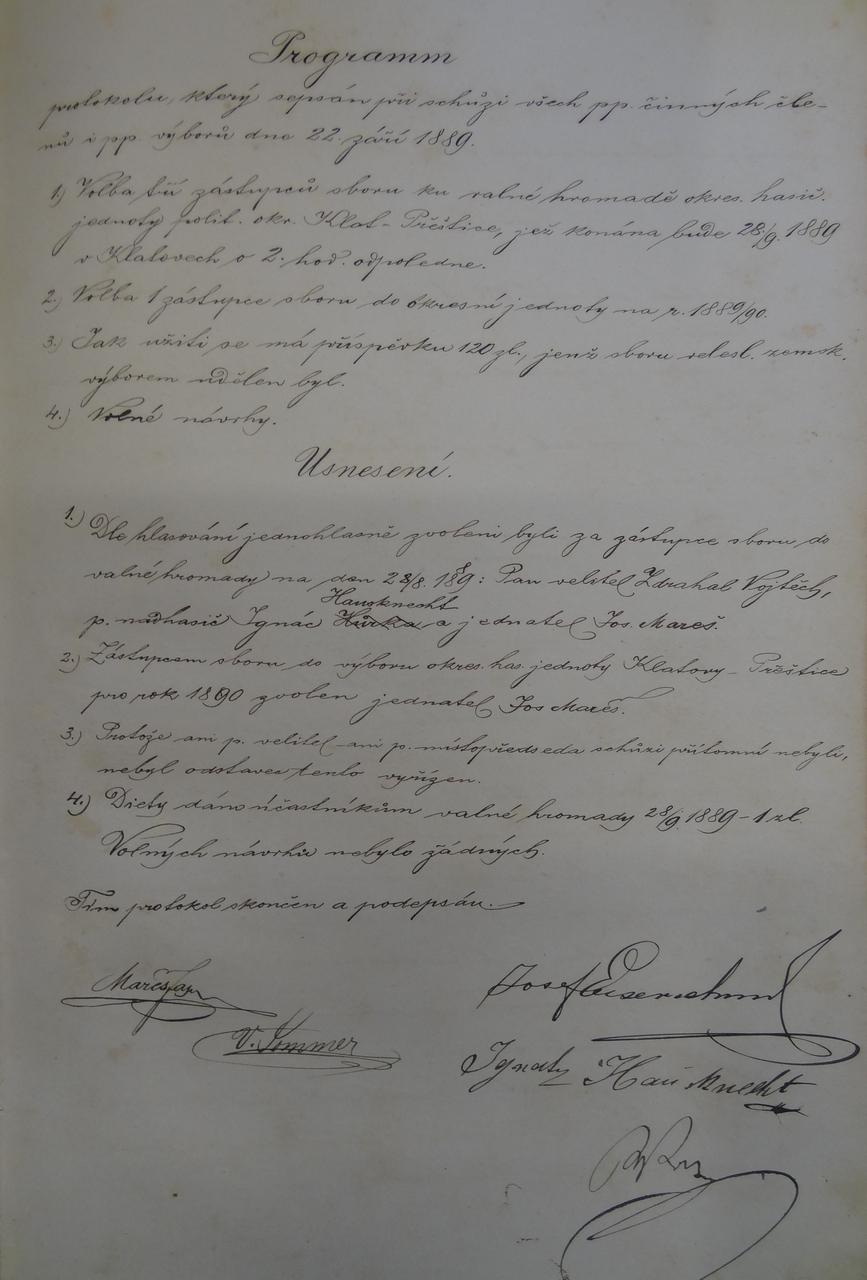 Programm
protokolu, který sepsán při schůzi všech pp. činných čle-
nů i pp. výborů dne 22. září 1889.
1.) Volba tří zástupců sboru ku valné hromadě okres. hasič.
jednoty polit. okr. Klat-Přeštice, jež konána bude 28./9. 1889
v Klatovech o 2. hod. odpoledne.
2.) Volba 1 zástupce sboru do okresní jednoty na r. 1889/90.
3.) Jak užiti se má příspěvku 120 zl., jenž sboru velesl. zemsk.
výborem udělen byl.
4.) Volné návrhy.
Usnesení.
1.) Dle hlasování jednohlasně zvoleni byli za zástupce sboru do
valné hromady na den 28/8. 189: Pan velitel Zdrahal Vojtěch,
Hausknecht
p. nadhasič Ignác Hůrka a jednatel Jos. Mareš.
2.) Zástupcem sboru do výboru okres. has. jednoty Klatovy - Přeštice
pro rok 1890 zvolen jednatel Jos Mareš.
3.) Protože ani p. velitel ani p. místopředseda schůzi přítomni nebyli,
nebyl odstavec tento vyřízen.
4.) Diety dáno účastníkům valné hromady 28/9. 1889 - 1 zl.
Volných návrhů nebylo žádných.
Tím protokol skončen a podepsán.
Mareš Jos
Josef
V. Sommer
Ignatz Hausknecht